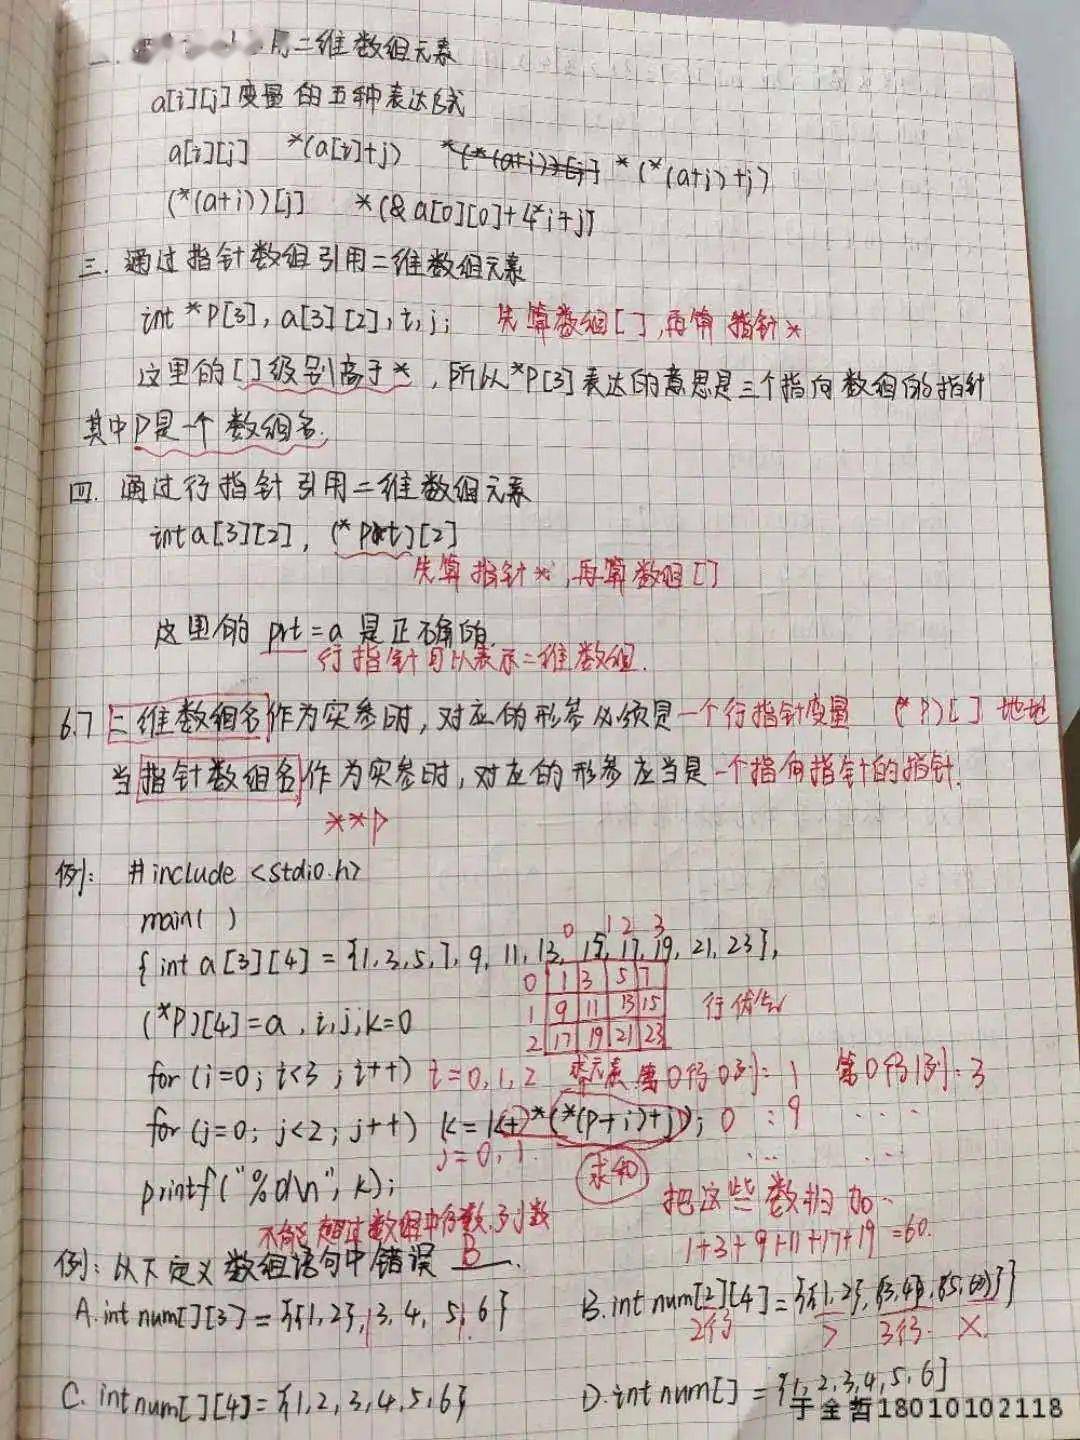 用二维数组元素
a[i][j]变量的五种表达式
a[i][j] *(a[i]+j) *(*(a+i)+j)
(*(a+i))[j] *(&a[0][0]+4*i+j)
三.通过指针数组引用二维数组元素
int *P[3], a[3][2], i, j; 先算数组[],再算指针*
这里的[]级别高于*,所以*P[3]表达的意思是三个指向数组的指针
其中P是一个数组名.
四.通过行指针引用二维数组元素
int a[3][2], (*prt)[2]
先算指针*,再算数组[]
这里的 prt=a 是正确的.
行指针可以表示二维数组.
6.7 二维数组名作为实参时,对应的形参必须是一个行指针变量 (*P)[] 地址
当指针数组名作为实参时,对应的形参应当是一个指向指针的指针.
**P
例: #include <stdio.h>
main( )
0 1 2 3
{int a[3][4]={1,3,5,7,9,11,13,15,17,19,21,23},
0 1 3 5 7
(*P)[4]=a, i,j,k=0 1 9 11 13 15 行优先
2 17 19 21 23
for (i=0; i<3; i++) i=0,1,2 求元素 第0行0列: 1 第0行1列: 3
for (j=0; j<2; j++) k=k+*(*(P+i)+j); 0 :9 ...
j=0,1. ... ...
printf("%d\n", k); 求和 把这些数相加..
不能超过数组中行数,列数 1+3+9+11+17+19=60.
例: 以下定义数组语句中错误 B .
A. int num[][3]={{1,2},3,4,5,6} B. int num[2][4]={{1,2},{3,4},{5,6}}
2行 > 3行. X.
C. int num[][4]={1,2,3,4,5,6} D. int num[]={1,2,3,4,5,6}
于全哲18010102118